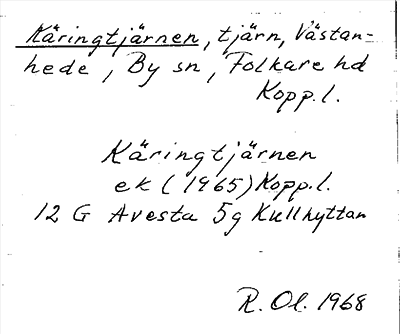 Käringtjärnen, tjärn, Västan=
hede, By sn, Folkare hd
Kopp. l.
Käringtjärnen
ek (1965) Kopp. l.
12 G Avesta 5g Kullhyttan
R. Ol. 1968